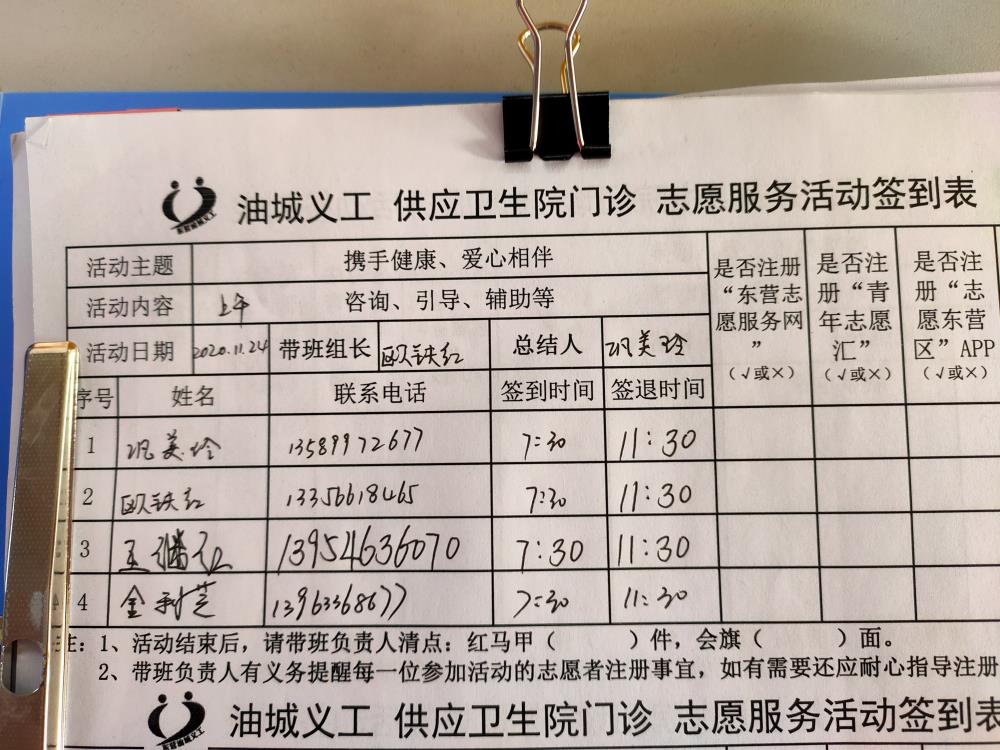 油城义工 供应卫生院门诊 志愿服务活动签到表
活动主题 携手健康、爱心相伴 是否注册“东营志愿服务网” (√或×) 是否注册“青年志愿汇” (√或×) 是否注册“志愿东营区”APP (√或×)
活动内容 上午 咨询、引导、辅助等
活动日期 2020.11.24 带班组长 欧铁红 总结人 巩美玲
序号 姓名 联系电话 签到时间 签退时间
1 巩美玲 13589972677 7:30 11:30
2 欧铁红 13356618465 7:30 11:30
3 王继红 13954636070 7:30 11:30
4 金利芝 13963368677 7:30 11:30
注：1、活动结束后，请带班负责人清点：红马甲（ ）件，会旗（ ）面。
2、带班负责人有义务提醒每一位参加活动的志愿者注册事宜，如有需要还应耐心指导注册
油城义工 供应卫生院门诊 志愿服务活动签到表